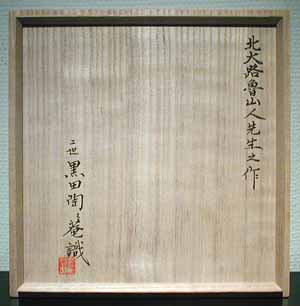 北大路魯山人先生之作
二世黒田陶々庵識